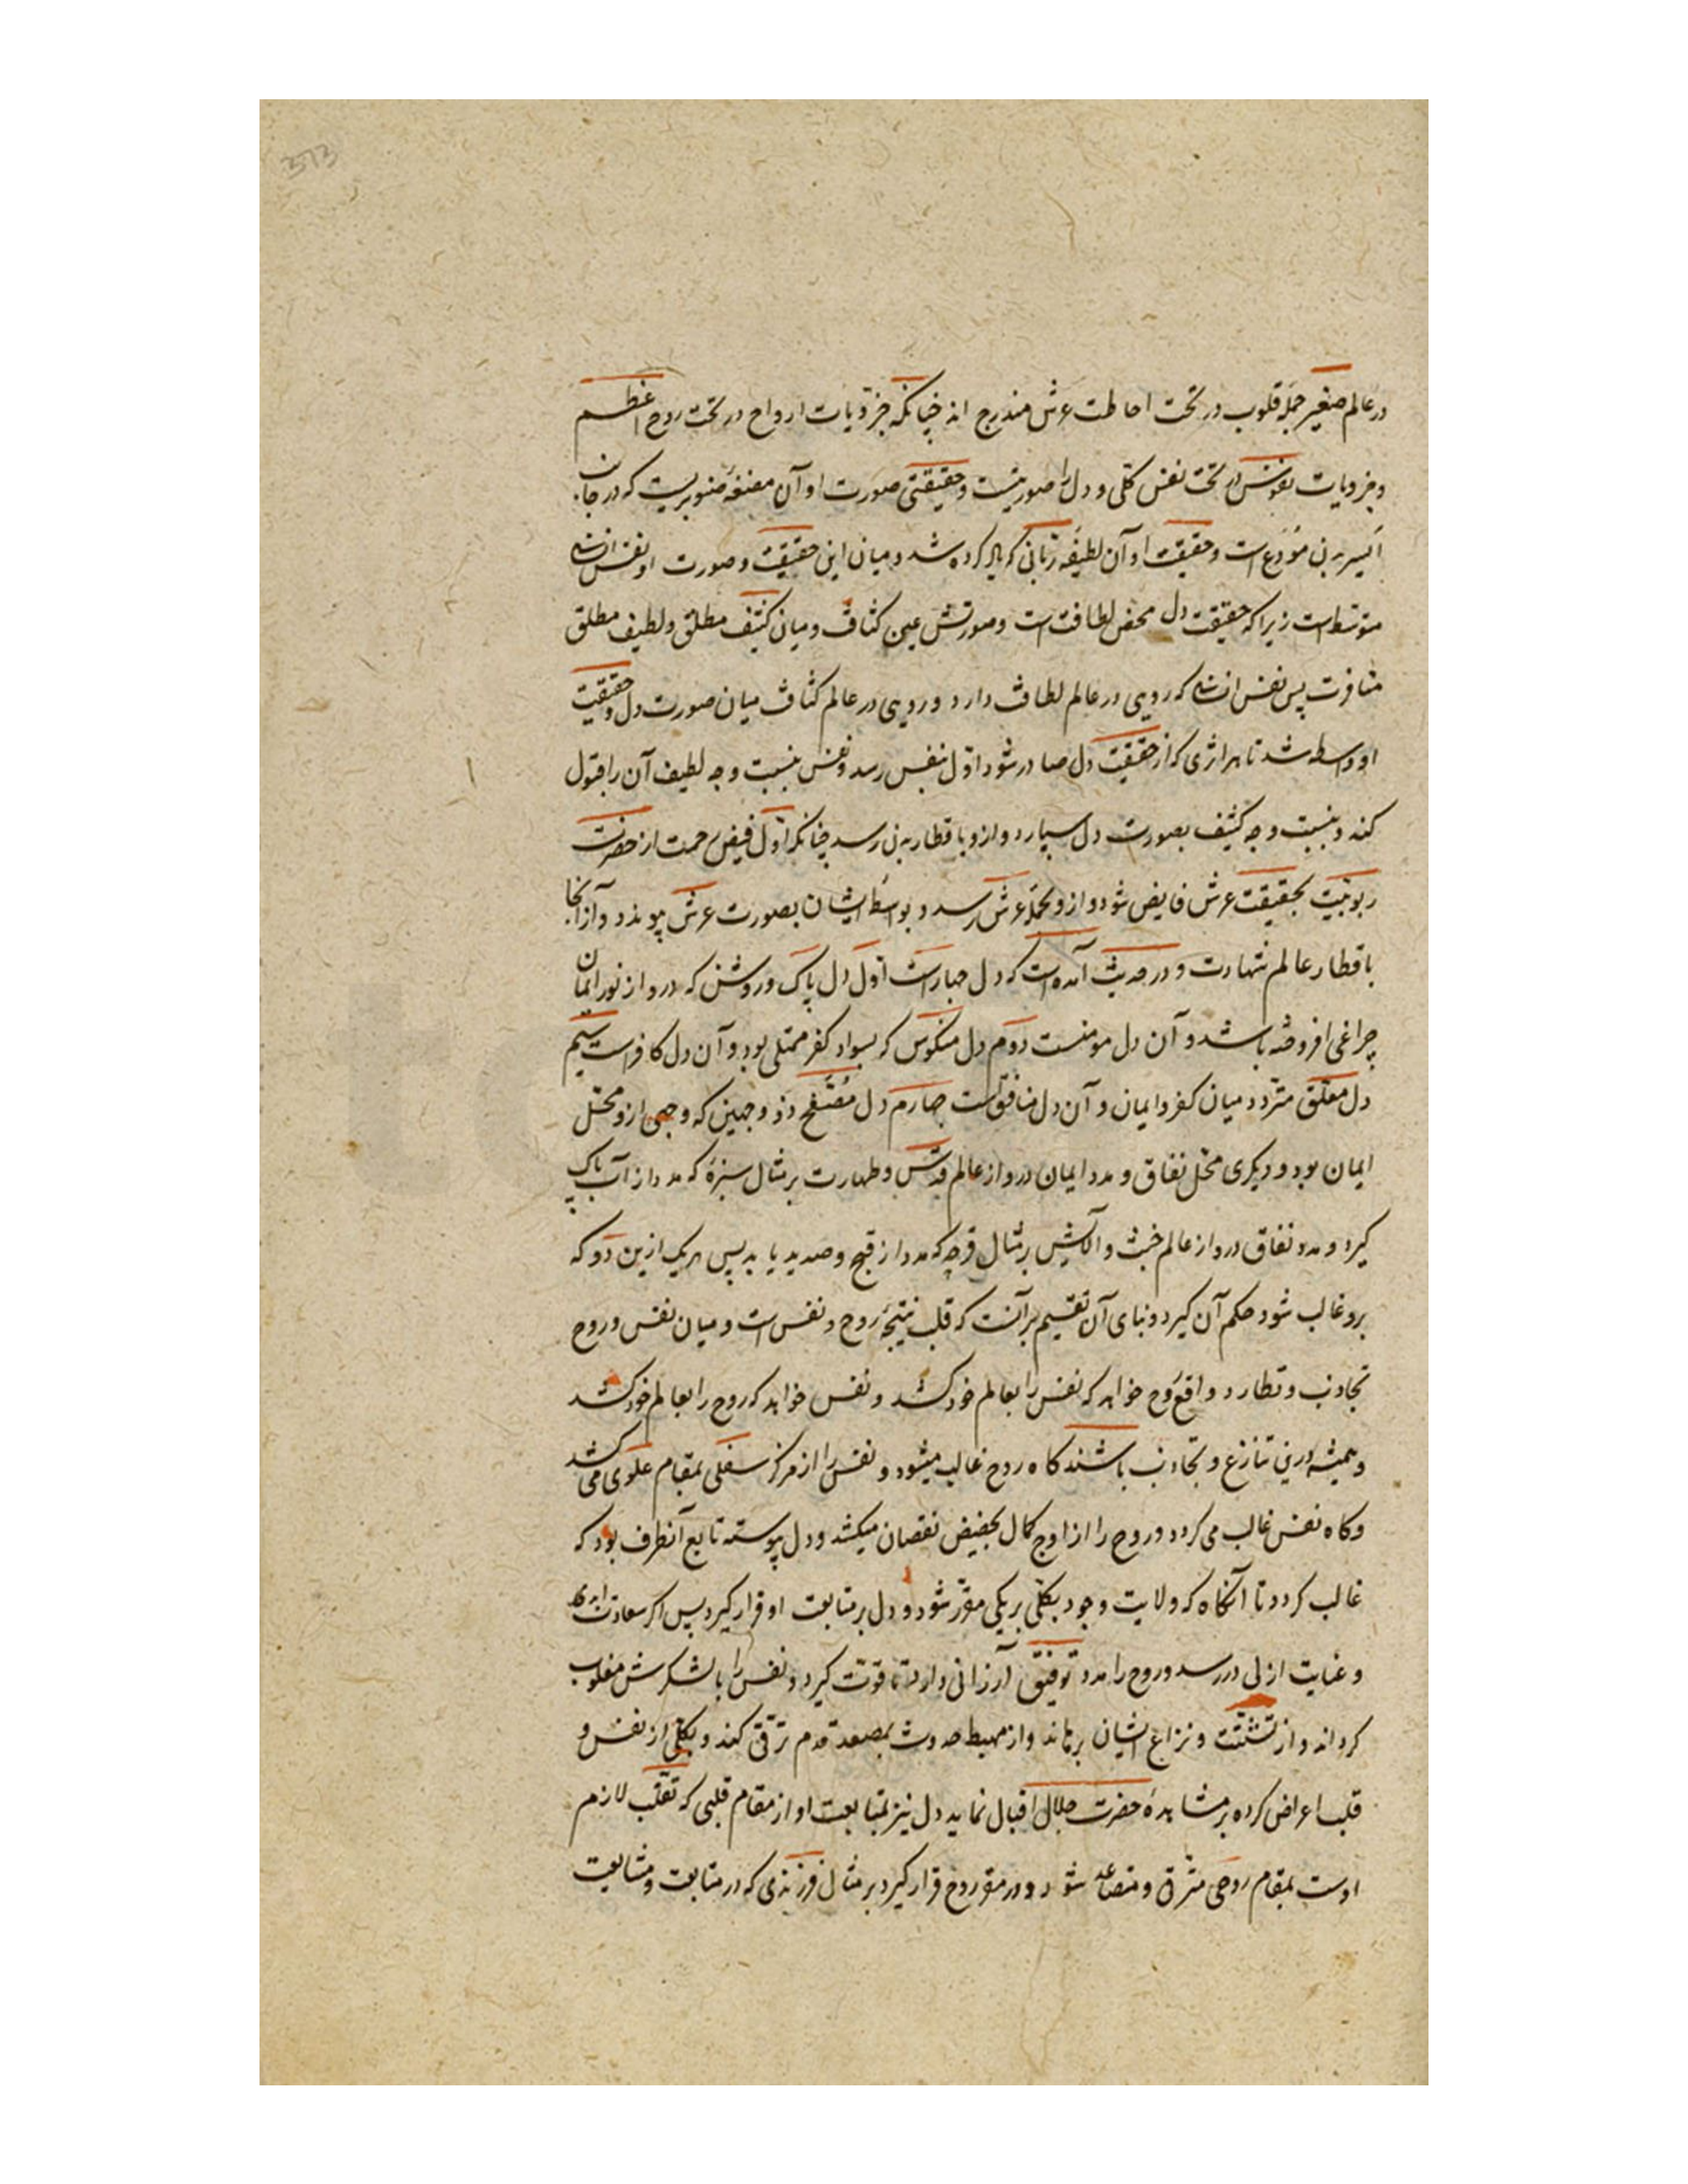 373
در عالم صغیر جمله قلوب در تحت احاطت عرش مندرج اند چنانکه جزویات ارواح در تحت روح اعظم
و جزویات نفوس در تحت نفس کلی و دل را صورتیست و حقیقتی صورت او آن مضغهٔ صنوبریست که در جانب
ایسر بدن مودع است و حقیقت او آن لطیفهٔ ربانی که یاد کرده شد و میان این حقیقت و صورت او نفس انسانی
متوسط است زیرا که حقیقت دل محض لطافت است و صورتش عین کثافت و میان کثیف مطلق و لطیف مطلق
منافرت پس نفس انسانی که رویی در عالم لطافت دارد و رویی در عالم کثافت میان صورت دل و حقیقت
او واسطه شد تا هر اثری که از حقیقت دل صادر شود اول بنفس رسد و نفس بنسبت وجه لطیف آن را قبول
کند و بنسبت وجه کثیف بصورت دل سپارد و ازو باقطار بدن رسد چنانکه اول فیض رحمت از حضرت
ربوبیت بحقیقت عرش فایض شود و ازو بحملهٔ عرش رسد و بواسطهٔ ایشان بصورت عرش پیوندد و از آنجا
باقطار عالم شهادت و در حدیث آمده است که دل چهارست اول دل پاک و روشن که درو از نور ایمان
چراغی افروخته باشد و آن دل مومنست دوم دل منکوس که بسواد کفر ممتلی بود و آن دل کافرست سیم
دل معلق متردد میان کفر و ایمان و آن دل منافق است چهارم دل مصفح ذو وجهین که وجهی ازو محل
ایمان بود و دیگری محل نفاق و مدد ایمان درو از عالم قدس و طهارت بر مثال سبزهٔ که مدد از آب پاک
گیرد و مدد نفاق درو از عالم خبث و آلایش بر مثال قرحه که مدد از قیح و صدید یابد پس هر یک ازین دو که
برو غالب شود حکم آن گیرد و بنای آن تقسیم بر آنست که قلب نتیجهٔ روح و نفس است و میان نفس و روح
تجاذب و تطارد واقع روح خواهد که نفس را بعالم خود کشد و نفس خواهد که روح را بعالم خود کشد
و همیشه درین تنازع و تجاذب باشند گاه روح غالب میشود و نفس را از مرکز سفلی بمقام علوی می کشد
و گاه نفس غالب می گردد و روح را از اوج کمال بحضیض نقصان میکشد و دل پیوسته تابع آنطرف بود که
غالب گردد تا آنگاه که ولایت وجود بکلی بر یکی مقرر شود و دل بر متابعت او قرار گیرد پس اگر سعادت ابدی
و عنایت ازلی در رسد و روح را مدد توفیق ارزانی دارد تا قوت گیرد و نفس را با لشکرش مغلوب
گرداند و از تشتت و نزاع ایشان برهاند و از مهبط حدوث بمصعد قدم ترقی کند و بکلی از نفس و
قلب اعراض کرده بر مشاهدهٔ حضرت جلال اقبال نماید دل نیز بمتابعت او از مقام قلبی که تقلب لازم
اوست بمقام روحی مترقی و متصاعد شود و در مقر روح قرار گیرد بر مثال فرزندی که در متابعت و مشایعت